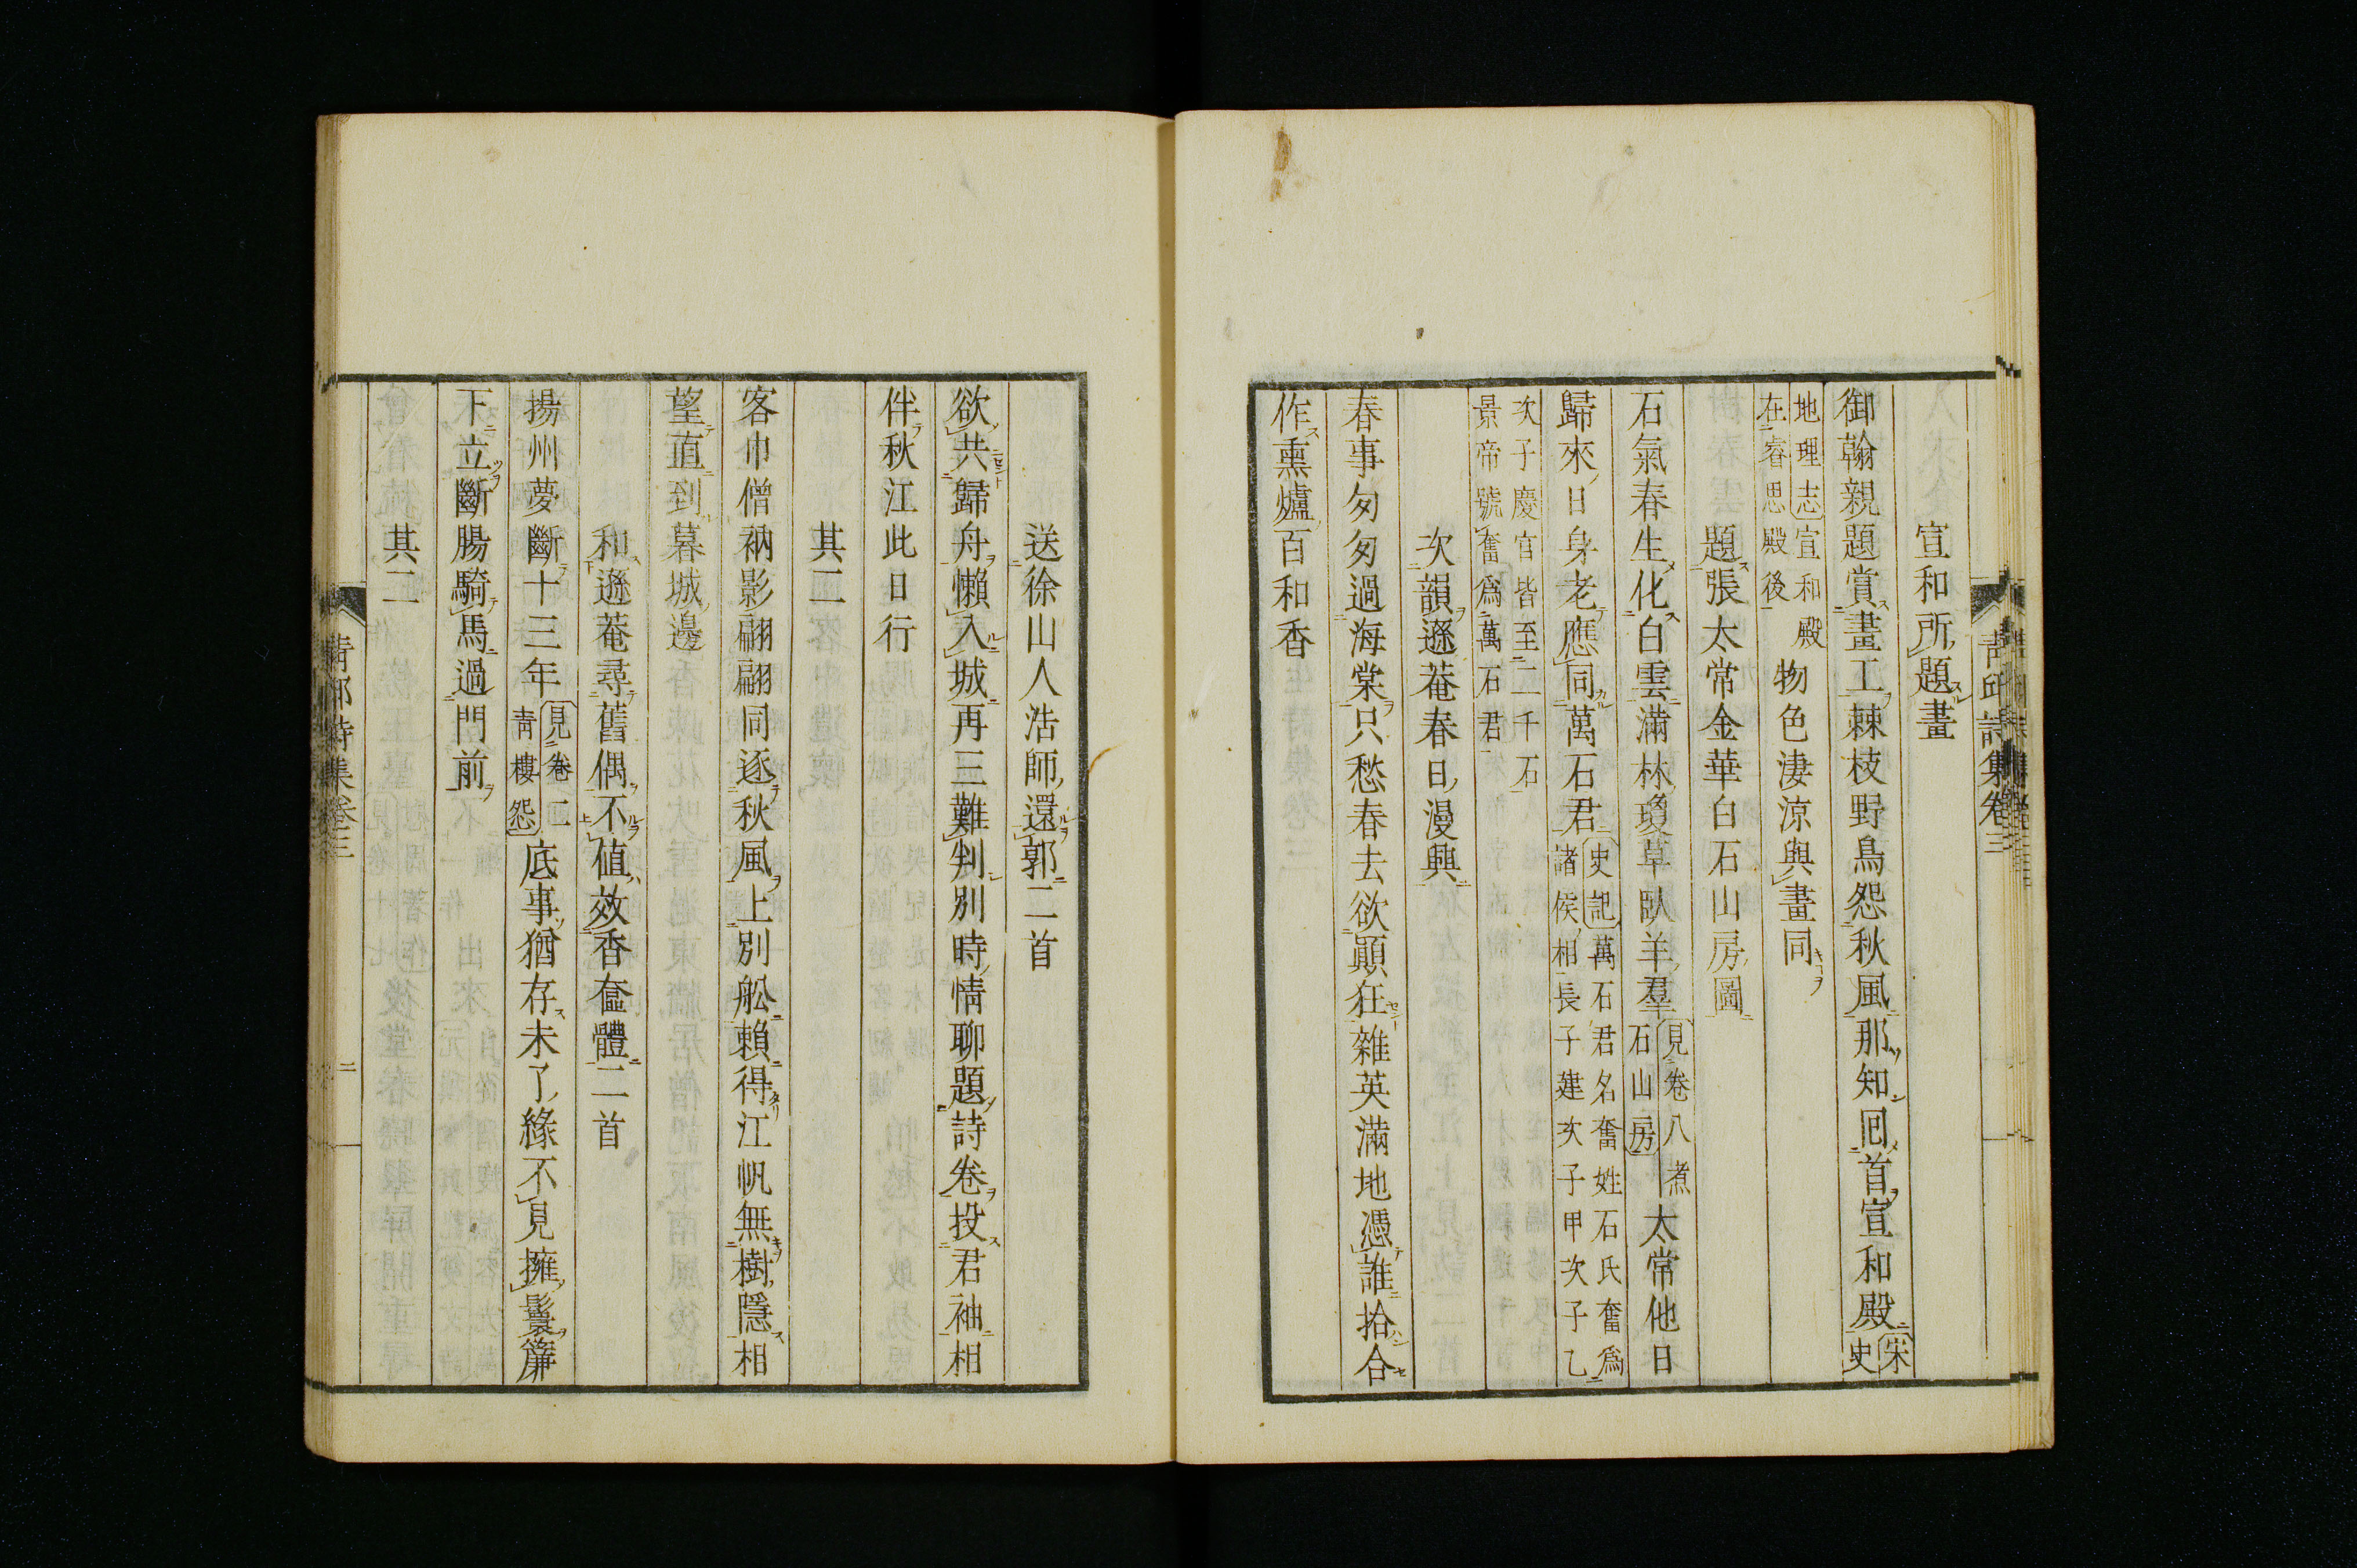 青邱詩集卷三
宣和所題畫
御翰親題賞畫工棘枝野鳥怨秋風那知回首宣和殿宋史
地理志宣和殿在睿思殿後物色淒涼與畫同
題張太常金華白石山房圖
石氣春生化白雲滿林瓊草臥羊羣見卷八煮石山房太常他日
歸來日身老應同萬石君史記萬石君名奮姓石氏奮爲諸侯相長子建次子甲次子乙
次子慶官皆至二千石景帝號奮爲萬石君
次韻遜菴春日漫興
春事匆匆過海棠只愁春去欲顚狂雜英滿地憑誰拾合
作熏爐百和香
送徐山人浩師還郭二首
欲共歸舟懶入城再三難判別時情聊題詩卷投君袖相
伴秋江此日行
其二
客巾僧衲影翩翩同逐秋風上別舩賴得江帆無樹隱相
望直到暮城邊
和遜菴尋舊偶不值效香奩體二首
揚州夢斷十三年見卷二青樓怨底事猶存未了緣不見擁鬟簾
下立斷腸騎馬過門前
其二
青邱詩集卷三
二